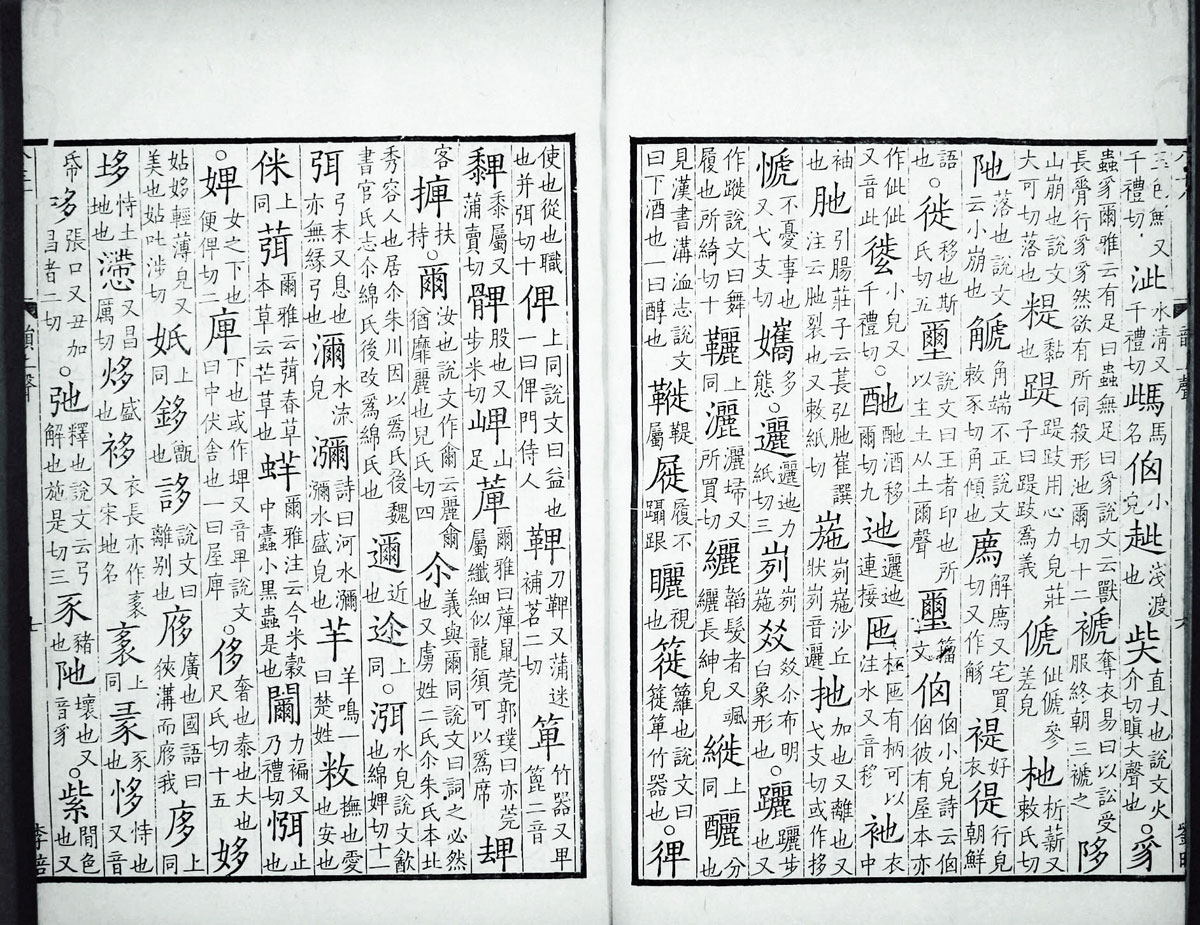 玉色鮮又千禮切泚水清又千禮切䳄馬名佌小皃𧺼淺渡也㱔直大也說文火介切瞋大聲也○豸
蟲豸爾雅云有足曰蟲無足曰豸說文云獸長脊行豸豸然欲有所伺殺形池爾切十二褫奪衣易曰以訟受服終朝三褫之陊
山崩也說文大可切落也䊓黏踶踶跂用心力皃莊子曰踶跂爲義傂佌傂參差皃杝析薪又敕氏切
阤落也說文云小崩也䚦角端不正說文敕豕切角傾也廌解廌又宅買切又作觟褆衣好徥行皃朝鮮
語也○徙移也斯氏切五壐說文曰王者印也所以主土从土爾聲璽籀文㑄佌小皃詩云佌佌彼有屋本亦
作佌佌又音此小皃又千禮切○酏酏酒移爾切九迆邐迆連接匜柸匜有柄可以注水又音移衪衣中
袖也胣引腸莊子云萇弘胣崔譔注云胣裂也又敕紙切崺峛崺沙丘狀峛音邐扡加也又離也弋支切或作拸
㦛不憂事也又弋支切㜅多態○邐邐迆力紙切三峛峛崺㸚㸚尒布明白象形也○躧躧步
作蹝說文曰舞履也所綺切十韉上同灑灑埽又所買切纚韜髮者又颯纚長紳皃縰上同釃分
見漢書溝洫志說文曰下酒也一曰醇也鞮屬屣履不躡跟矖視也簁籮也說文曰簁箄竹器也○俾
使也從也職也并弭切十俾上同說文曰益也一曰俾門侍人鞞刀鞞又蒲迷補茗二切箄竹器又畢箆二音
黍屬又蒲賣切髀股也又步米切崥山足䔑爾雅曰䔑鼠莞郭璞曰亦莞屬纖細似龍須可以爲席
客扶持○爾汝也說文作尒云麗爾猶靡麗也兒氏切四尒義與爾同說文曰詞之必然也又虜姓二氏尒朱氏本北
秀容人也居尒朱川因以爲氏後魏書官氏志尒綿氏後改爲綿氏也邇近也迩上同○渳水皃說文飲也綿婢切十一
弭弓末又息也亦無緣弓也濔水流皃瀰詩曰河水瀰瀰水盛皃也羋羊鳴一曰楚姓敉撫也愛也安也
侎上同葞爾雅云葞春草本草云芒草也蛘爾雅注云今米穀中蠹小黑蟲是也𨷾力褊又乃禮切㥝止也
○婢女之下也便俾切二庳下也或作埤又音卑說文曰中伏舍也一曰屋庳○侈奢也泰也大也尺氏切十五姼
姑姼輕薄皃又美也姑吐涉切妷上同鉹甑也誃說文曰離別也廖廣也國語曰俠溝而廖我㢋上同
垑恃土地也懘又昌厲切㶴盛也袲衣長亦作袤又宋地名袲上同彖豕也恀恃也又音
氏哆張口又丑加昌者二切○弛釋也說文云弓解也施是切三豕豬也阤壞也又音豸○紫閒色也又